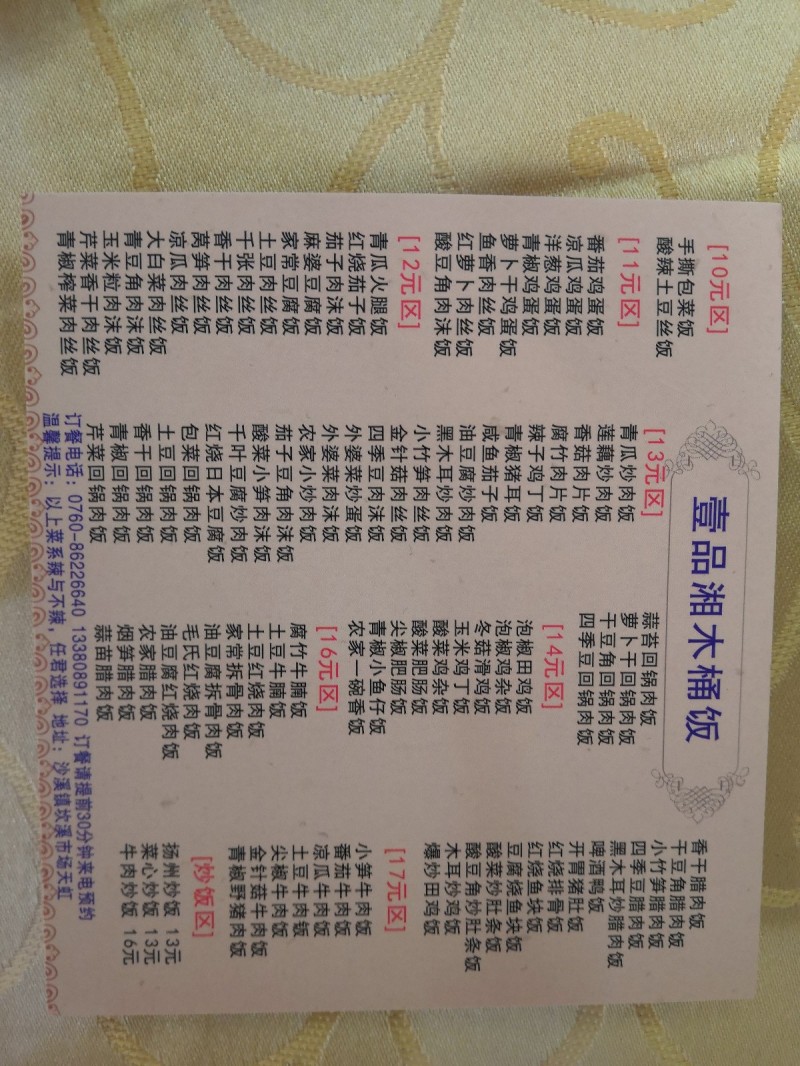 壹品湘木桶饭
[10元区]
手撕包菜饭
酸辣土豆丝饭
[11元区]
番茄鸡蛋饭
凉瓜鸡蛋饭
洋葱鸡蛋饭
青椒鸡蛋饭
萝卜干鸡蛋饭
鱼香肉丝饭
红萝卜肉丝饭
酸豆角肉沫饭
[12元区]
青瓜火腿饭
红烧茄子饭
茄子肉沫饭
麻婆豆腐饭
家常豆腐饭
土豆肉丝饭
千张肉丝饭
香干肉丝饭
莴笋肉丝饭
凉瓜肉丝饭
大白菜肉丝饭
青豆角肉沫饭
玉米粒肉沫饭
芹菜香干肉丝饭
青椒榨菜肉丝饭
[13元区]
青瓜炒肉饭
莲藕炒肉饭
香菇肉片饭
腐竹肉片饭
辣子鸡丁饭
青椒猪耳饭
咸鱼茄子饭
油豆腐炒肉饭
黑木耳炒肉饭
小竹笋肉丝饭
金针菇肉丝饭
四季豆肉沫饭
外婆菜炒蛋饭
外婆菜肉沫饭
农家小炒肉饭
茄子豆角肉沫饭
酸菜小笋肉沫饭
千叶豆腐炒肉饭
红烧日本豆腐饭
包菜回锅肉饭
土豆回锅肉饭
香干回锅肉饭
青椒回锅肉饭
芹菜回锅肉饭
蒜苔回锅肉饭
萝卜干回锅肉饭
干豆角回锅肉饭
四季豆回锅肉饭
[14元区]
泡椒田鸡饭
泡椒鸡杂饭
冬菇滑鸡饭
玉米鸡丁饭
酸菜鸡杂饭
酸菜肥肠饭
尖椒肥肠饭
青椒小鱼仔饭
农家一碗香饭
[16元区]
腐竹牛腩饭
土豆牛腩饭
土豆红烧肉饭
家常拆骨肉饭
油豆腐拆骨肉饭
毛氏红烧肉饭
油豆腐红烧肉饭
农家腊肉饭
烟笋腊肉饭
蒜苗腊肉饭
香干腊肉饭
干豆角腊肉饭
小竹笋腊肉饭
四季豆腊肉饭
黑木耳炒腊肉饭
啤酒鸭饭
开胃猪肚饭
红烧排骨饭
红烧鱼块饭
豆腐烧鱼块饭
酸菜炒肚条饭
酸豆角炒肚条饭
木耳炒鸡饭
爆炒田鸡饭
[17元区]
小笋牛肉饭
番茄牛肉饭
凉瓜牛肉饭
土豆牛肉饭
尖椒牛肉饭
金针菇牛肉饭
青椒野猪肉饭
[炒饭区]
扬州炒饭 13元
菜心炒饭 13元
牛肉炒饭 16元
订餐电话：0760-86226640 13380891170 订餐请提前30分钟来电预约
温馨提示：以上菜系辣与不辣，任君选择 地址：沙溪镇坎溪市场天虹